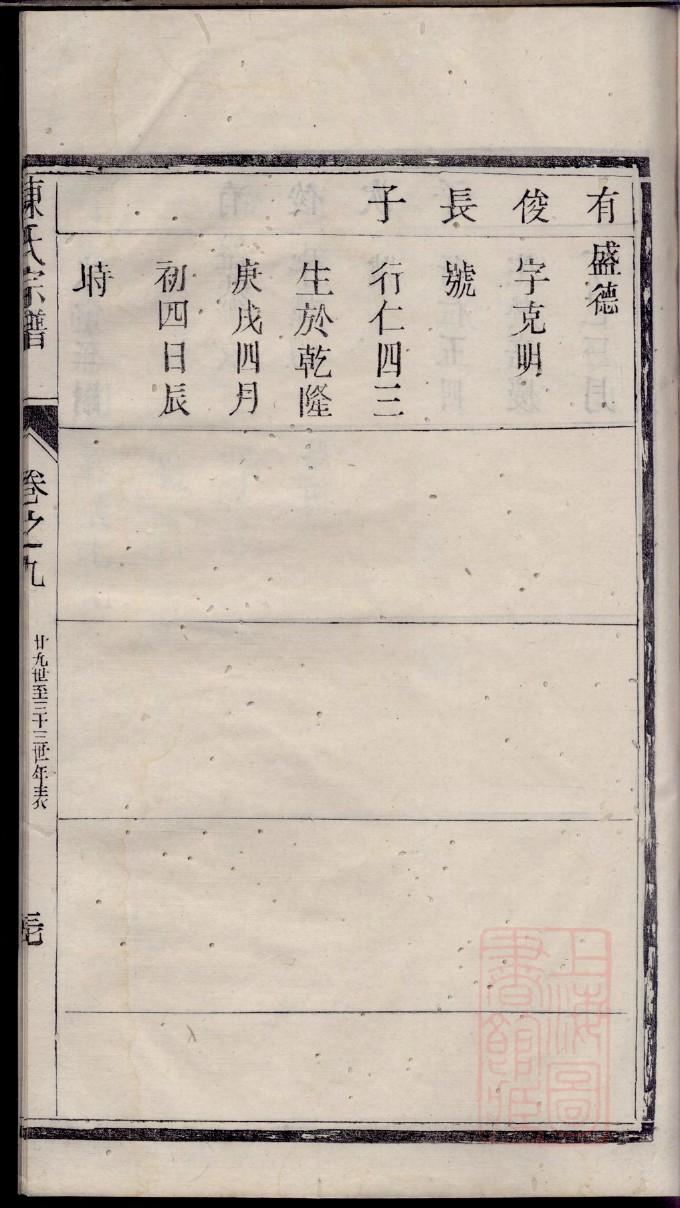 有俊長子
盛德
字克明
號
行仁四三
生於乾隆
庚戌四月
初四日辰
時
陳氏宗譜
卷之九
廿九世至三十三世年表
上海圖書館藏